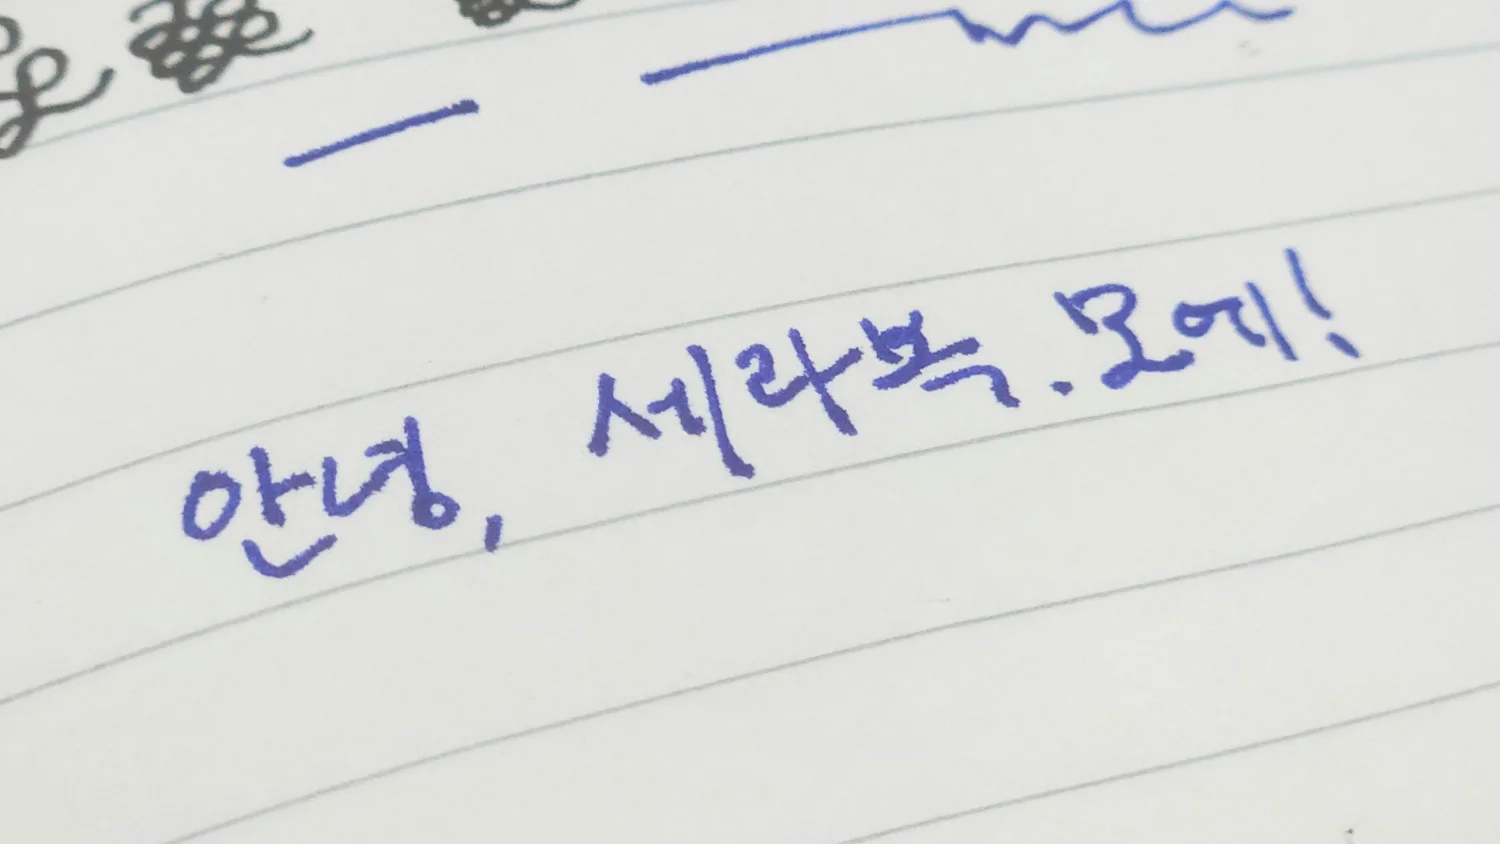 안녕, 세라복.모에!